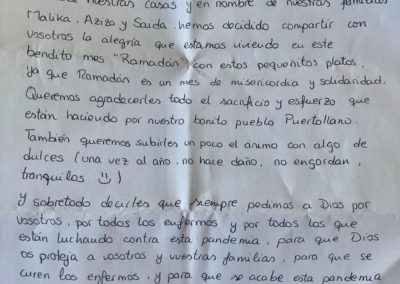 nuestras casas y en nombre de nuestras familias
Malika, Aziza y Saida, hemos decidido compartir con
vosotros la alegría que estamos viviendo en este
bendito mes "Ramadán" con estos pequeñitos platos,
ya que Ramadán es un mes de misericordia y solidaridad.
Queremos agradecerles todo el sacrificio y esfuerzo que
están haciendo por nuestro bonito pueblo Puertollano.
También queremos subirles un poco el ánimo con algo de
dulces (una vez al año, no hace daño, no engordan,
tranquilos ☺)
Y sobretodo decirles que siempre pedimos a Dios por
vosotros, por todos los enfermos y por todos los que
están luchando contra esta pandemia, para que Dios
os proteja a vosotros y vuestras familias, para que se
curen los enfermos, y para que se acabe esta pandemia